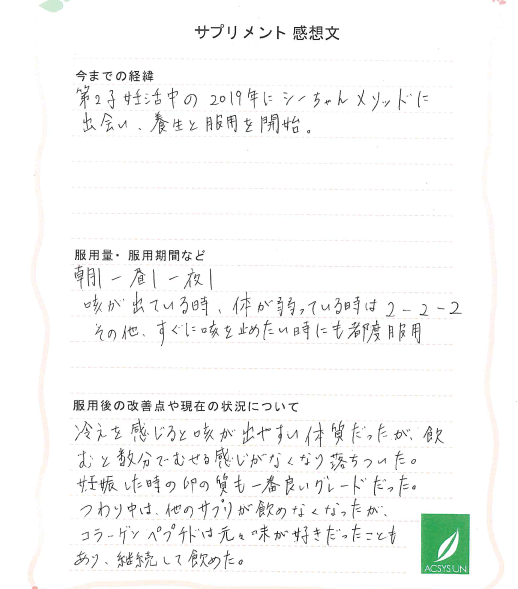 サプリメント 感想文
今までの経緯
第2子妊活中の 2019年に シーちゃんメソッドに
出会い、養生と服用を開始。
服用量・服用期間など
朝1 ー 昼1 ー 夜1
咳が出ている時、体が弱っている時は 2 - 2 - 2
その他、すぐに咳を止めたい時にも都度服用
服用後の改善点や現在の状況について
冷えを感じると咳が出やすい体質だったが、飲
むと数分でむせる感じがなくなり落ちついた。
妊娠した時の卵の質も一番良いグレードだった。
つわり中は、他のサプリが飲めなくなったが、
コラーゲンペプチドは元々味が好きだったことも
あり、継続して飲めた。
ACSYSUN